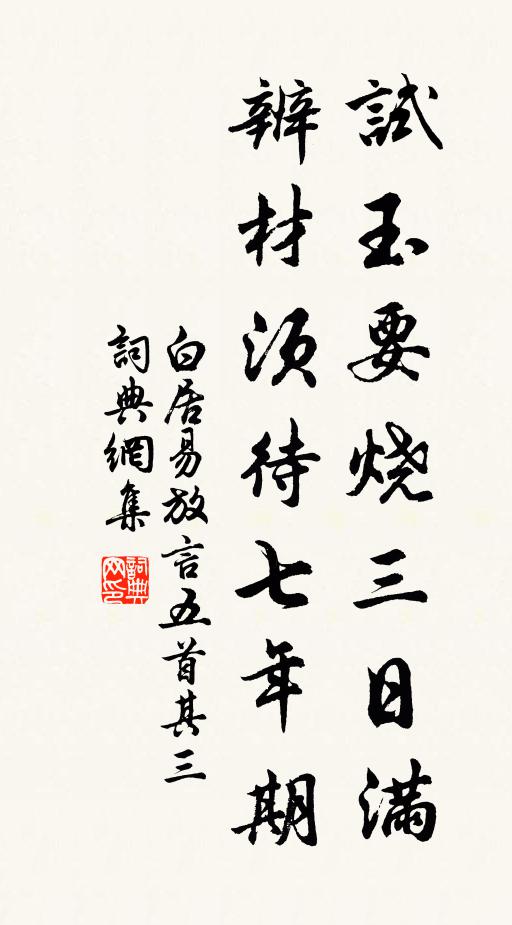 試玉要烧三日滿
辨材须待七年期
白居易放言五首其三
詞典網集
詞典网印